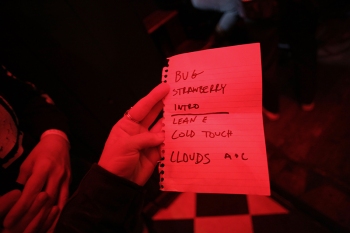 BUG
STRAWBERRY
INTRO
LEAN E
COLD TOUCH
CLOUDS A+C